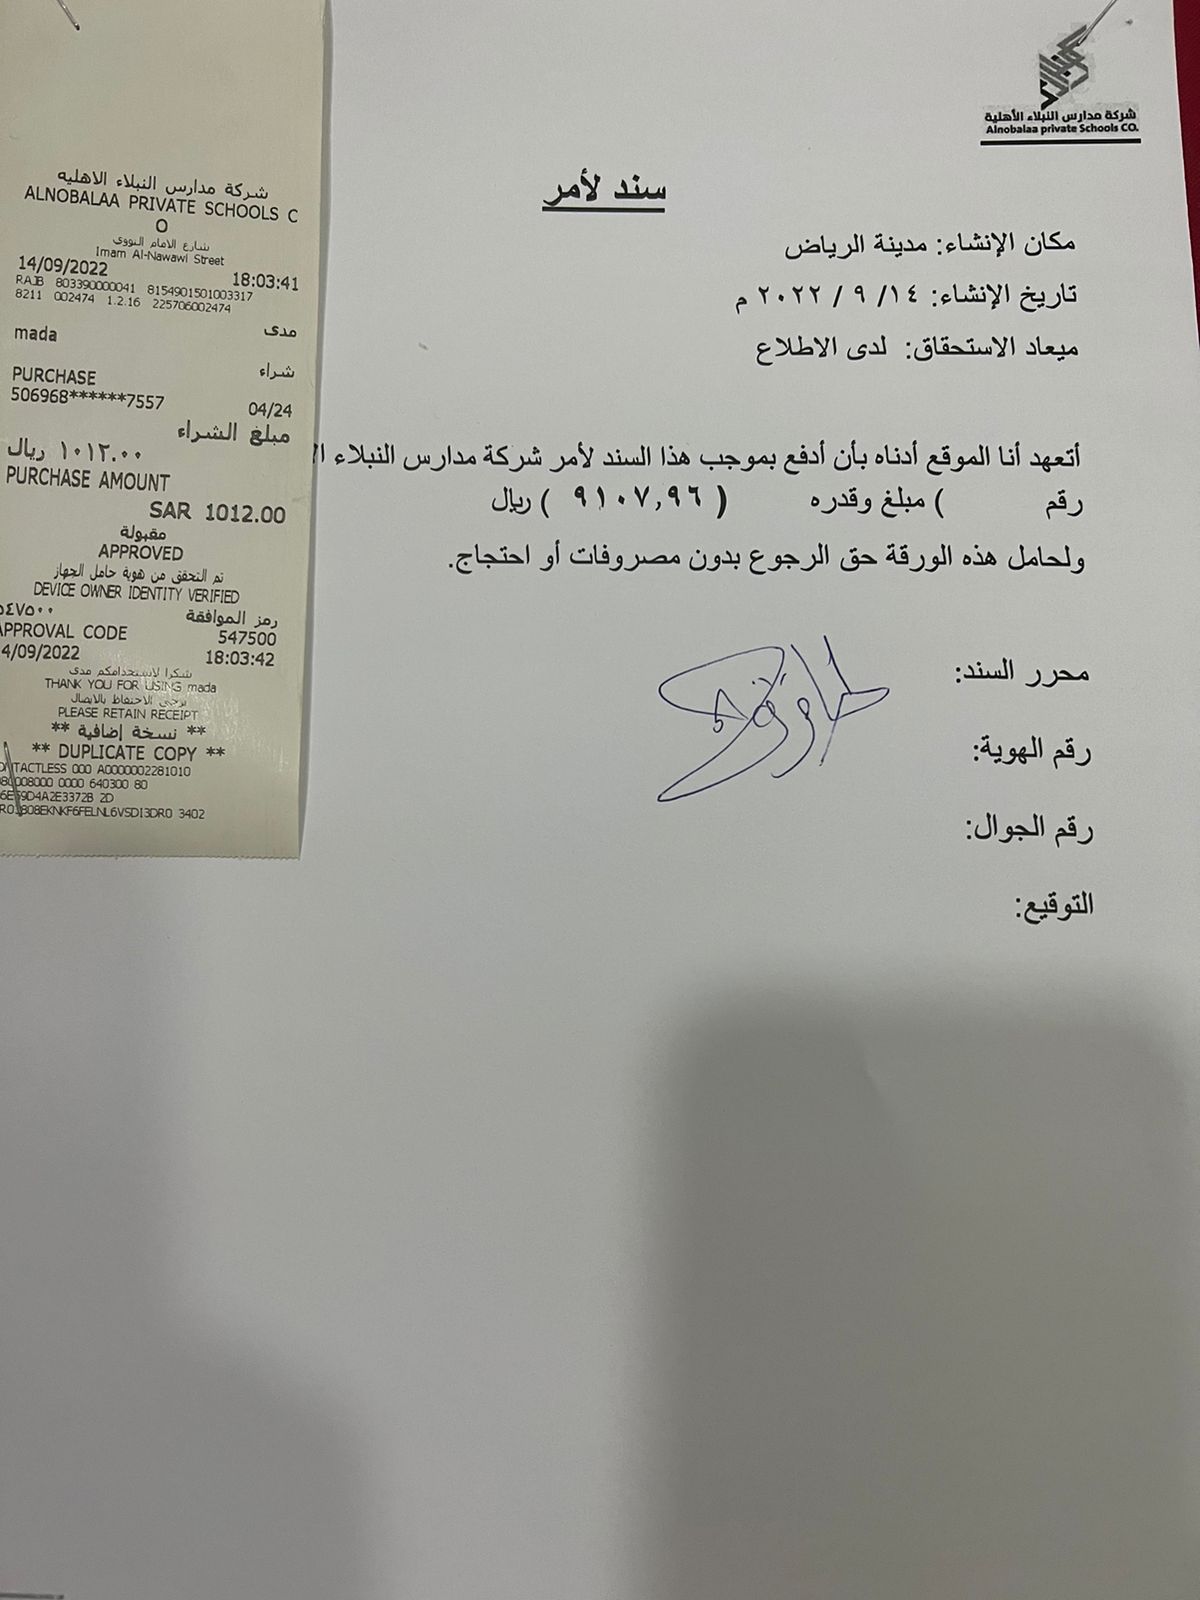 شركة مدارس النبلاء الأهلية
Alnobalaa private Schools CO.
سند لأمر
مكان الإنشاء: مدينة الرياض
تاريخ الإنشاء: ١٤/ ٩ / ٢٠٢٢ م
ميعاد الاستحقاق: لدى الاطلاع
أتعهد أنا الموقع أدناه بأن أدفع بموجب هذا السند لأمر شركة مدارس النبلاء
رقم ) مبلغ وقدره ( ٩١٠٧,٩٦ ) ريال
ولحامل هذه الورقة حق الرجوع بدون مصروفات أو احتجاج.
محرر السند:
رقم الهوية:
رقم الجوال:
التوقيع:
شركة مدارس النبلاء الاهليه
ALNOBALAA PRIVATE SCHOOLS C
O
شارع الامام النووي
Imam Al-Nawawi Street
14/09/2022 18:03:41
RAJB 803390000041 8154901501003317
8211 002474 1.2.16 225706002474
mada مدى
PURCHASE شراء
506968******7557 04/24
مبلغ الشراء
١٠١٢.٠٠ ريال
PURCHASE AMOUNT
SAR 1012.00
مقبولة
APPROVED
تم التحقق من هوية حامل الجهاز
DEVICE OWNER IDENTITY VERIFIED
رمز الموافقة ٥٤٧٥٠٠
APPROVAL CODE 547500
4/09/2022 18:03:42
شكرا لاستخدامكم مدى
THANK YOU FOR USING mada
يرجى الاحتفاظ بالايصال
PLEASE RETAIN RECEIPT
** نسخة إضافية **
** DUPLICATE COPY **
ONTACTLESS 000 A0000002281010
080008000 0000 640300 80
6E59D4A2E3372B 2D
3402